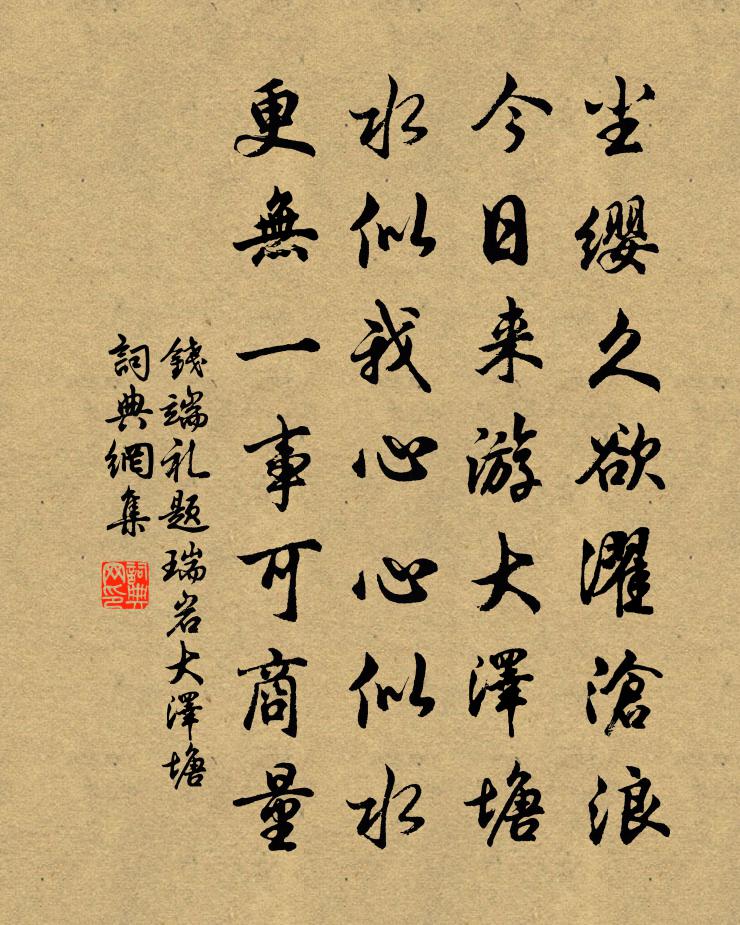 尘缨久欲濯滄浪
今日来游大澤塘
水似我心心似水
更無一事可商量
錢端礼题瑞岩大澤塘
詞典網集
詞典网印